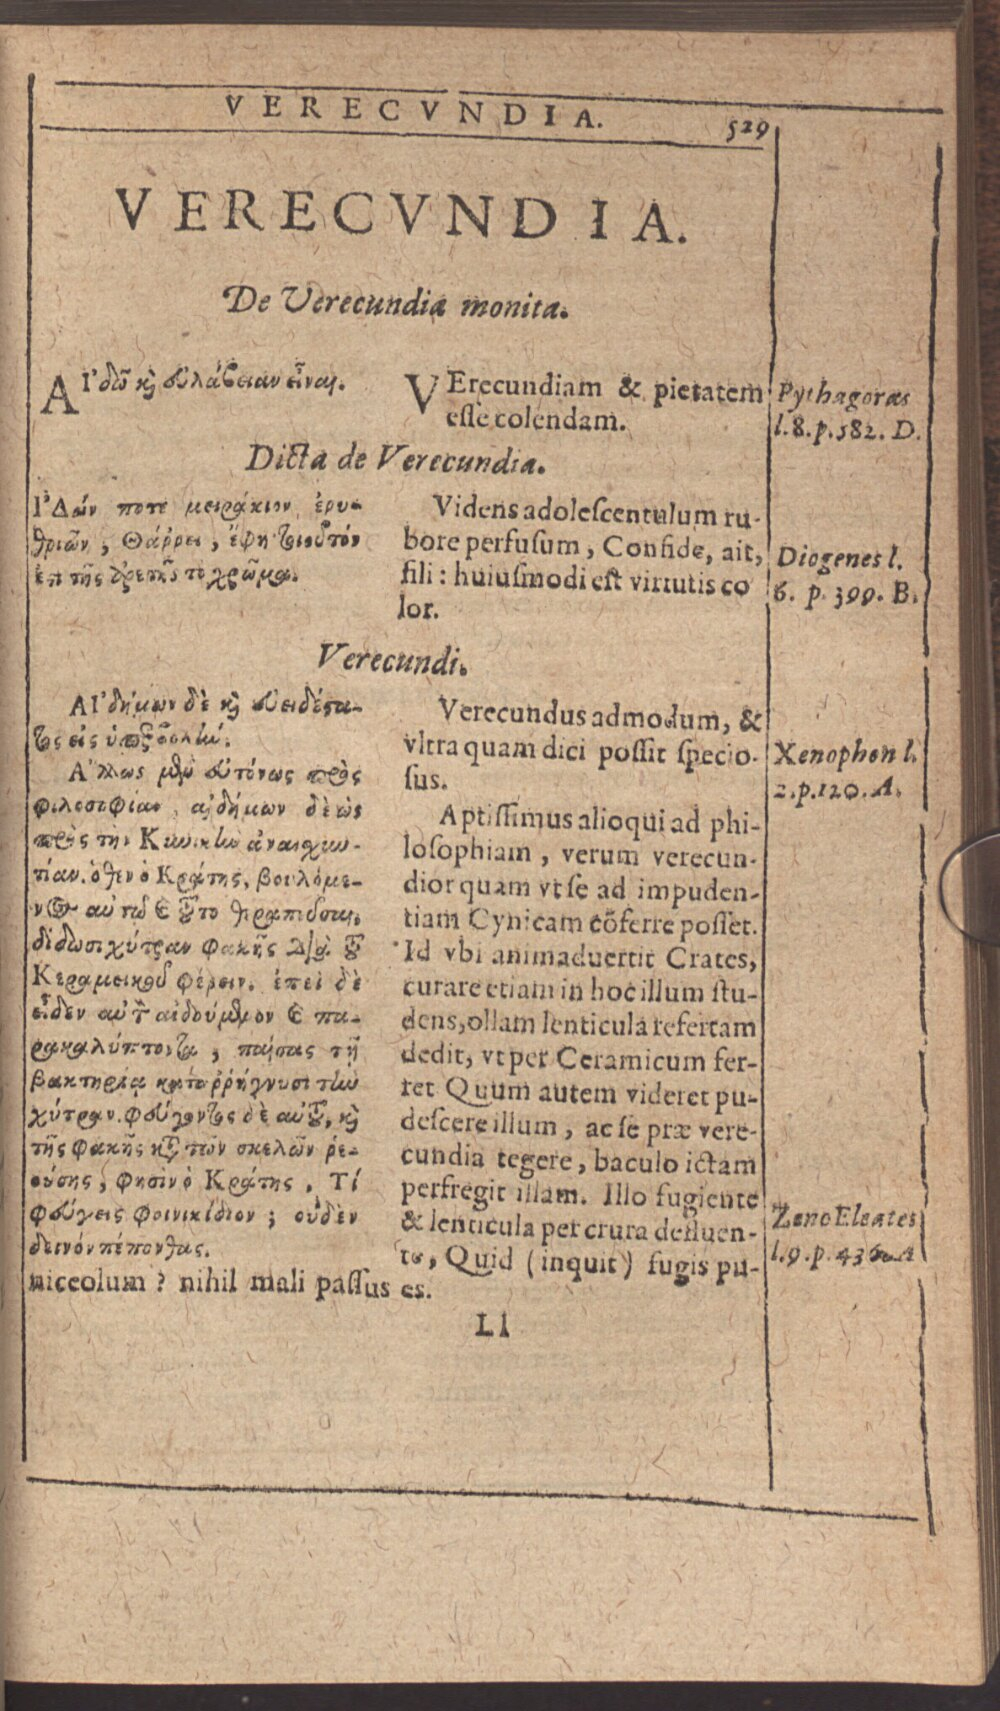 VERECVNDIA.
529
VERECVNDIA.
De Verecundia monita.
ΑΙ᾿δῶ καὶ εὐλάβειαν εἶναι.
VErecundiam & pietatem
esse colendam.
Pythagoras
l.8.p.582. D.
Dicta de Verecundia.
Ι᾿Δών ποτε μειράκιον ἐρυ-
θριῶν, Θάῤῥει, ἔφη, τοιοῦτόν
ἐστι τῆς ἀρετῆς τὸ χρῶμα.
Videns adolescentulum ru-
bore perfusum, Confide, ait,
fili: huiusmodi est virtutis co
lor.
Diogenes l.
6. p. 399. B.
Verecundi.
ΑΙ᾿δήμων δὲ καὶ εὐειδέστα-
τος εἰς ὑπερβολήν.
Α῎λλως μὲν εὐτόνως πρὸς
φιλοσοφίαν, αἰδήμων δὲ ὡς
πρὸς τὴν Κυνικὴν ἀναισχυν-
τίαν. ὅθεν ὁ Κράτης, βουλόμε-
νος αὐτὸν καὶ τοῦτο θεραπεῦσαι,
δίδωσι χύτραν φακῆς διὰ τοῦ
Κεραμεικοῦ φέρειν. ἐπεὶ δὲ
εἶδεν αὐτὸν αἰδούμενον καὶ πα-
ρακαλύπτοντα, παίσας τῇ
βακτηρίᾳ κατάῤῥηγνυσι τὴν
χύτραν. φεύγοντος δὲ αὐτοῦ, καὶ
τῆς φακῆς κατὰ τῶν σκελῶν ῥε-
ούσης, φησὶν ὁ Κράτης, Τί
φεύγεις φοινικίδιον; οὐδὲν
δεινὸν πέπονθας.
Verecundus admodum, &
vltra quam dici possit specio-
sus.
Aptissimus alioqui ad phi-
losophiam, verum verecun-
dior quam vt se ad impuden-
tiam Cynicam cōferre posset.
Id vbi animaduertit Crates,
curare etiam in hoc illum stu-
dens, ollam lenticula refertam
dedit, vt per Ceramicum fer-
ret Quum autem videret pu-
descere illum, ac se præ vere-
cundia tegere, baculo ictam
perfregit illam. Illo fugiente
& lenticula per crura defluen-
te, Quid (inquit) fugis pu-
niceolum? nihil mali passus es.
Xenophon l.
2.p.120.A.
Zeno Eleates
l.9.p.436.A
Ll